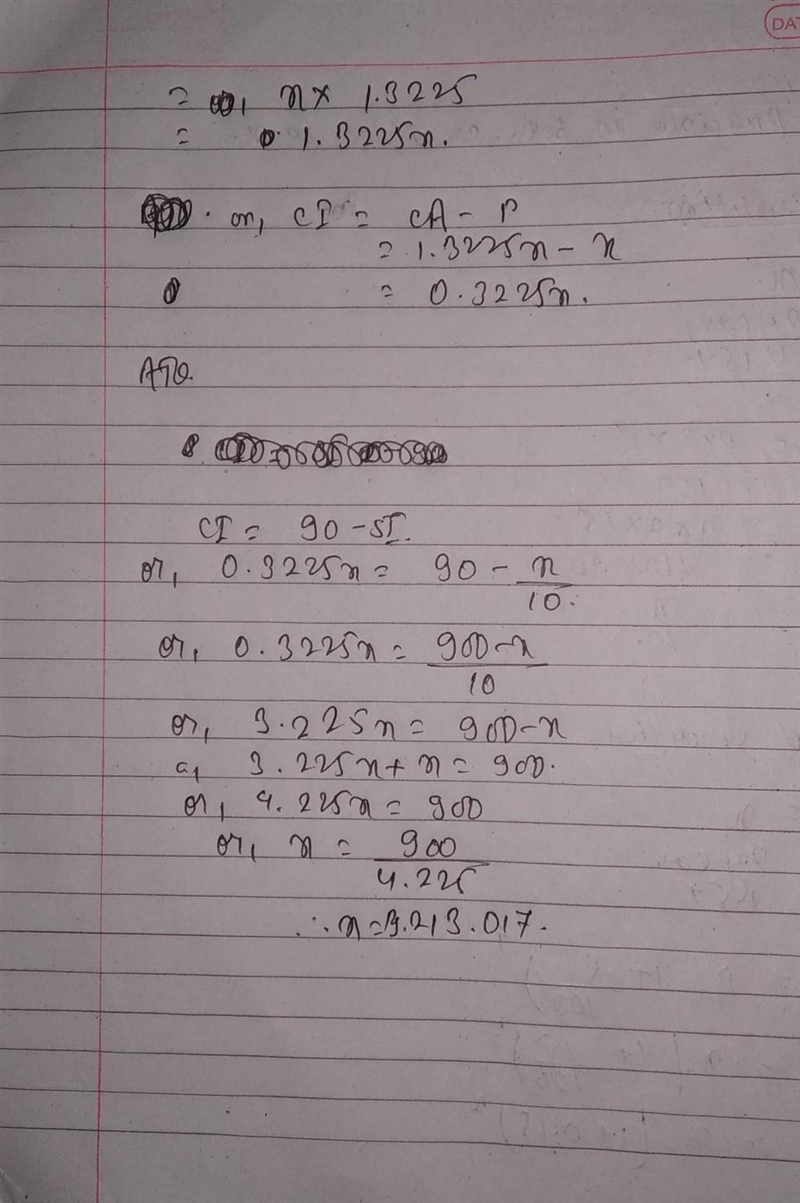 DAT
= , x × 1.3225
= 1.3225x.
or, CI = CA - P
= 1.3225x - x
= 0.3225x.
ATQ
CI = 90 - SI.
or, 0.3225x = 90 - x/10.
or, 0.3225x = 900-x/10
or, 3.225x = 900-x
or, 3.225x + x = 900.
or, 4.225x = 900
or, x = 900/4.225
∴ x = 213.017.